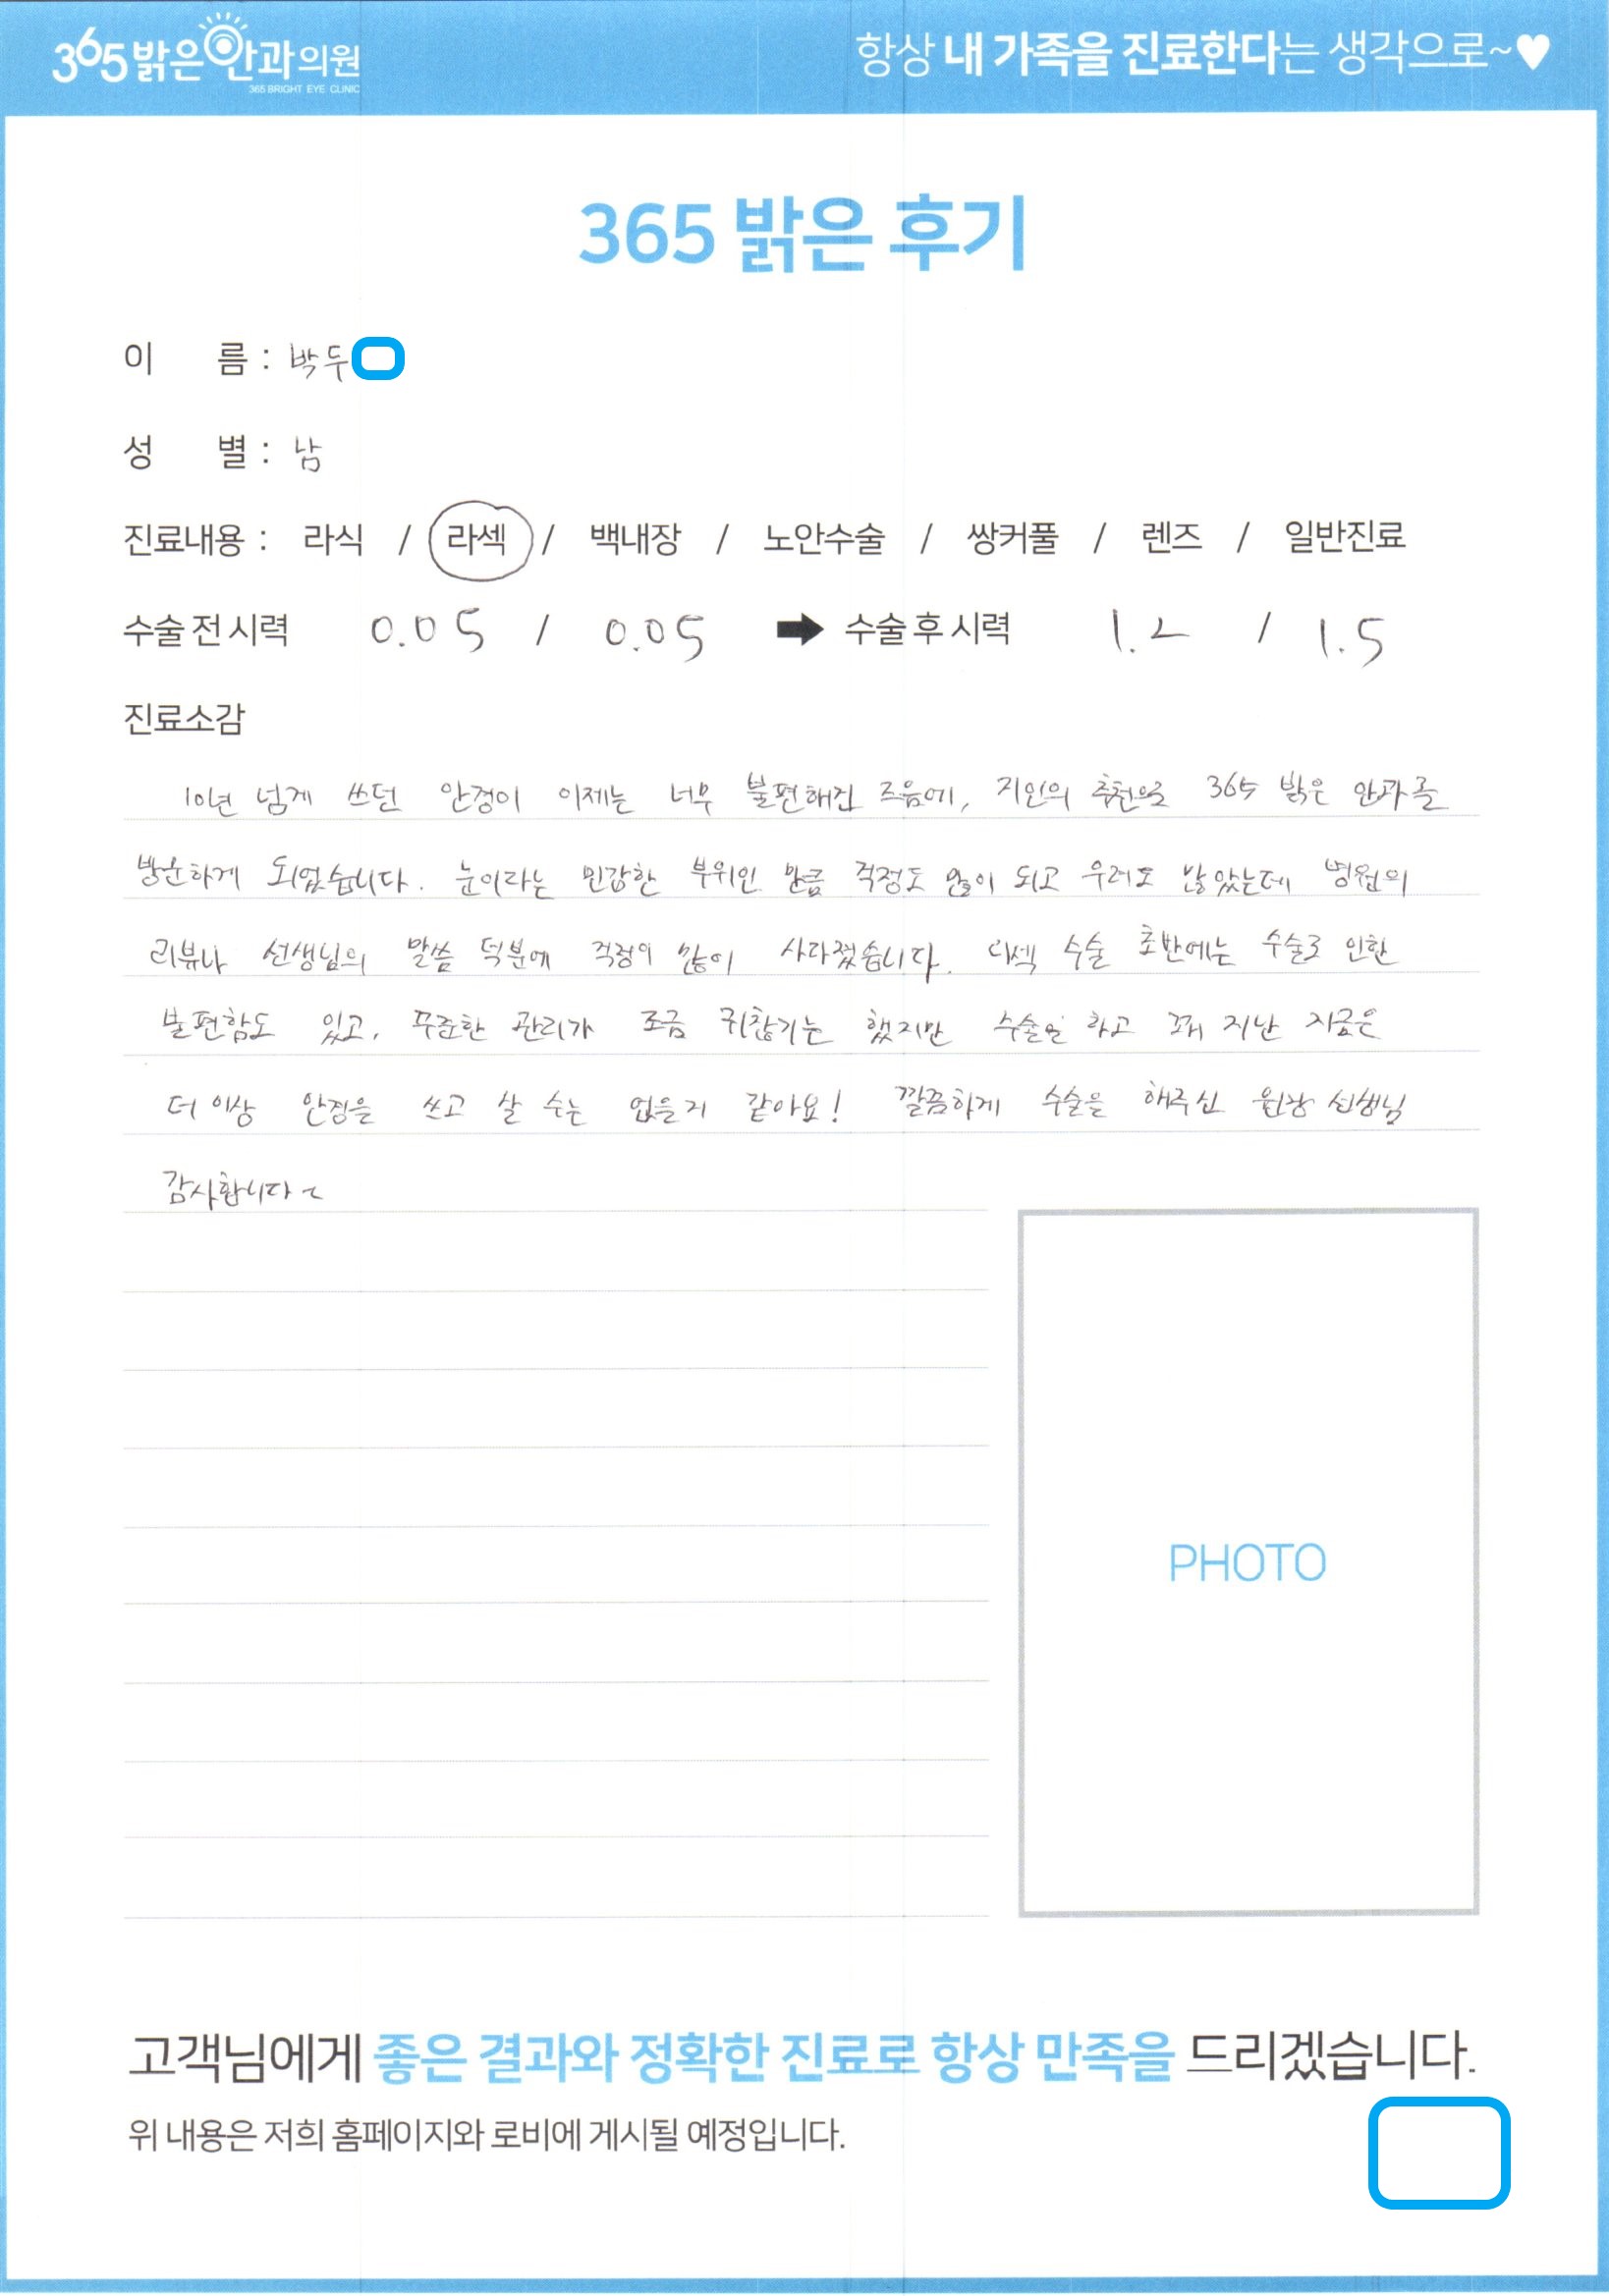 365 밝은안과의원
365 BRIGHT EYE CLINIC
항상 내 가족을 진료한다는 생각으로~♥
365 밝은 후기
이 름 : 박두
성 별 : 남
진료내용 : 라식 / 라섹 / 백내장 / 노안수술 / 쌍커풀 / 렌즈 / 일반진료
수술 전 시력 0.05 / 0.05 ➡ 수술 후 시력 1.2 / 1.5
진료소감
10년 넘게 쓰던 안경이 이제는 너무 불편해진 즈음에, 지인의 추천으로 365 밝은 안과를
방문하게 되었습니다. 눈이라는 민감한 부위인 만큼 걱정도 많이 되고 우려도 많았는데 병원의
리뷰나 선생님의 말씀 덕분에 걱정이 많이 사라졌습니다. 라섹 수술 초반에는 수술로 인한
불편함도 있고, 꾸준한 관리가 조금 귀찮기는 했지만 수술을 하고 꽤 지난 지금은
더 이상 안경을 쓰고 살 수는 없을거 같아요! 깔끔하게 수술을 해주신 원장 선생님
감사합니다~
PHOTO
고객님에게 좋은 결과와 정확한 진료로 항상 만족을 드리겠습니다.
위 내용은 저희 홈페이지와 로비에 게시될 예정입니다.